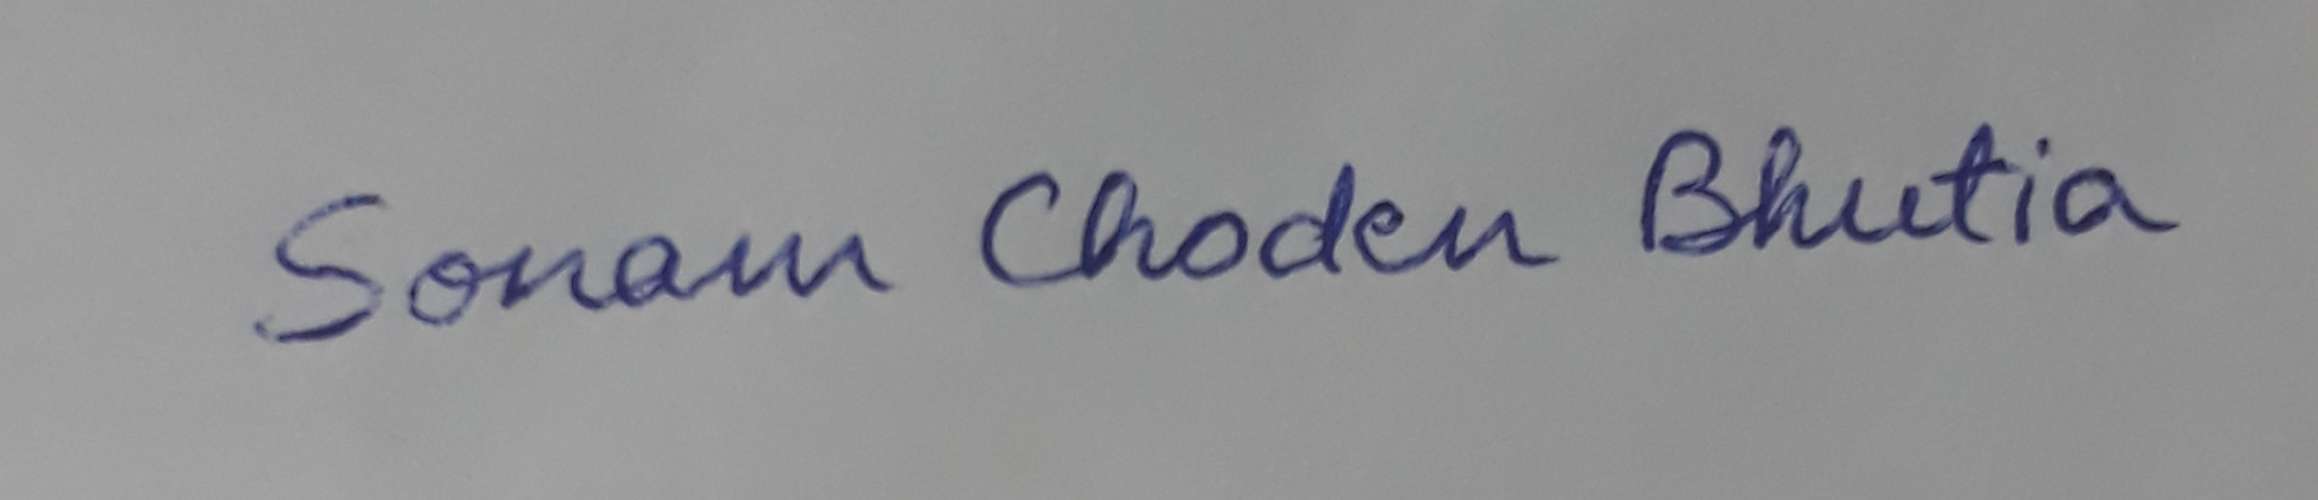 Sonam Choden Bhutia